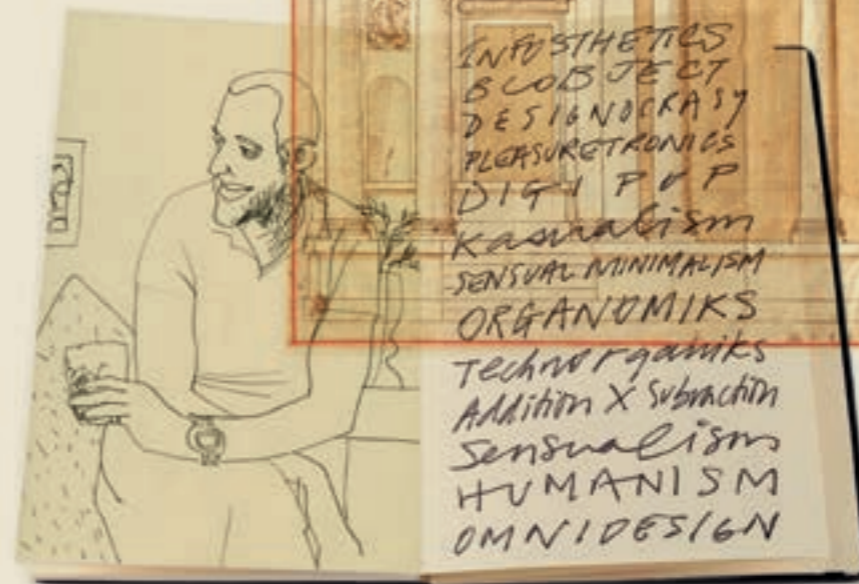 INFOSTHETICS
BLOBJECT
DESIGNOCRASY
PLEASURETRONICS
DIGI POP
Kasualism
SENSUAL MINIMALISM
ORGANOMIKS
Technorganiks
Addition X Subtraction
Sensualism
HUMANISM
OMNIDESIGN